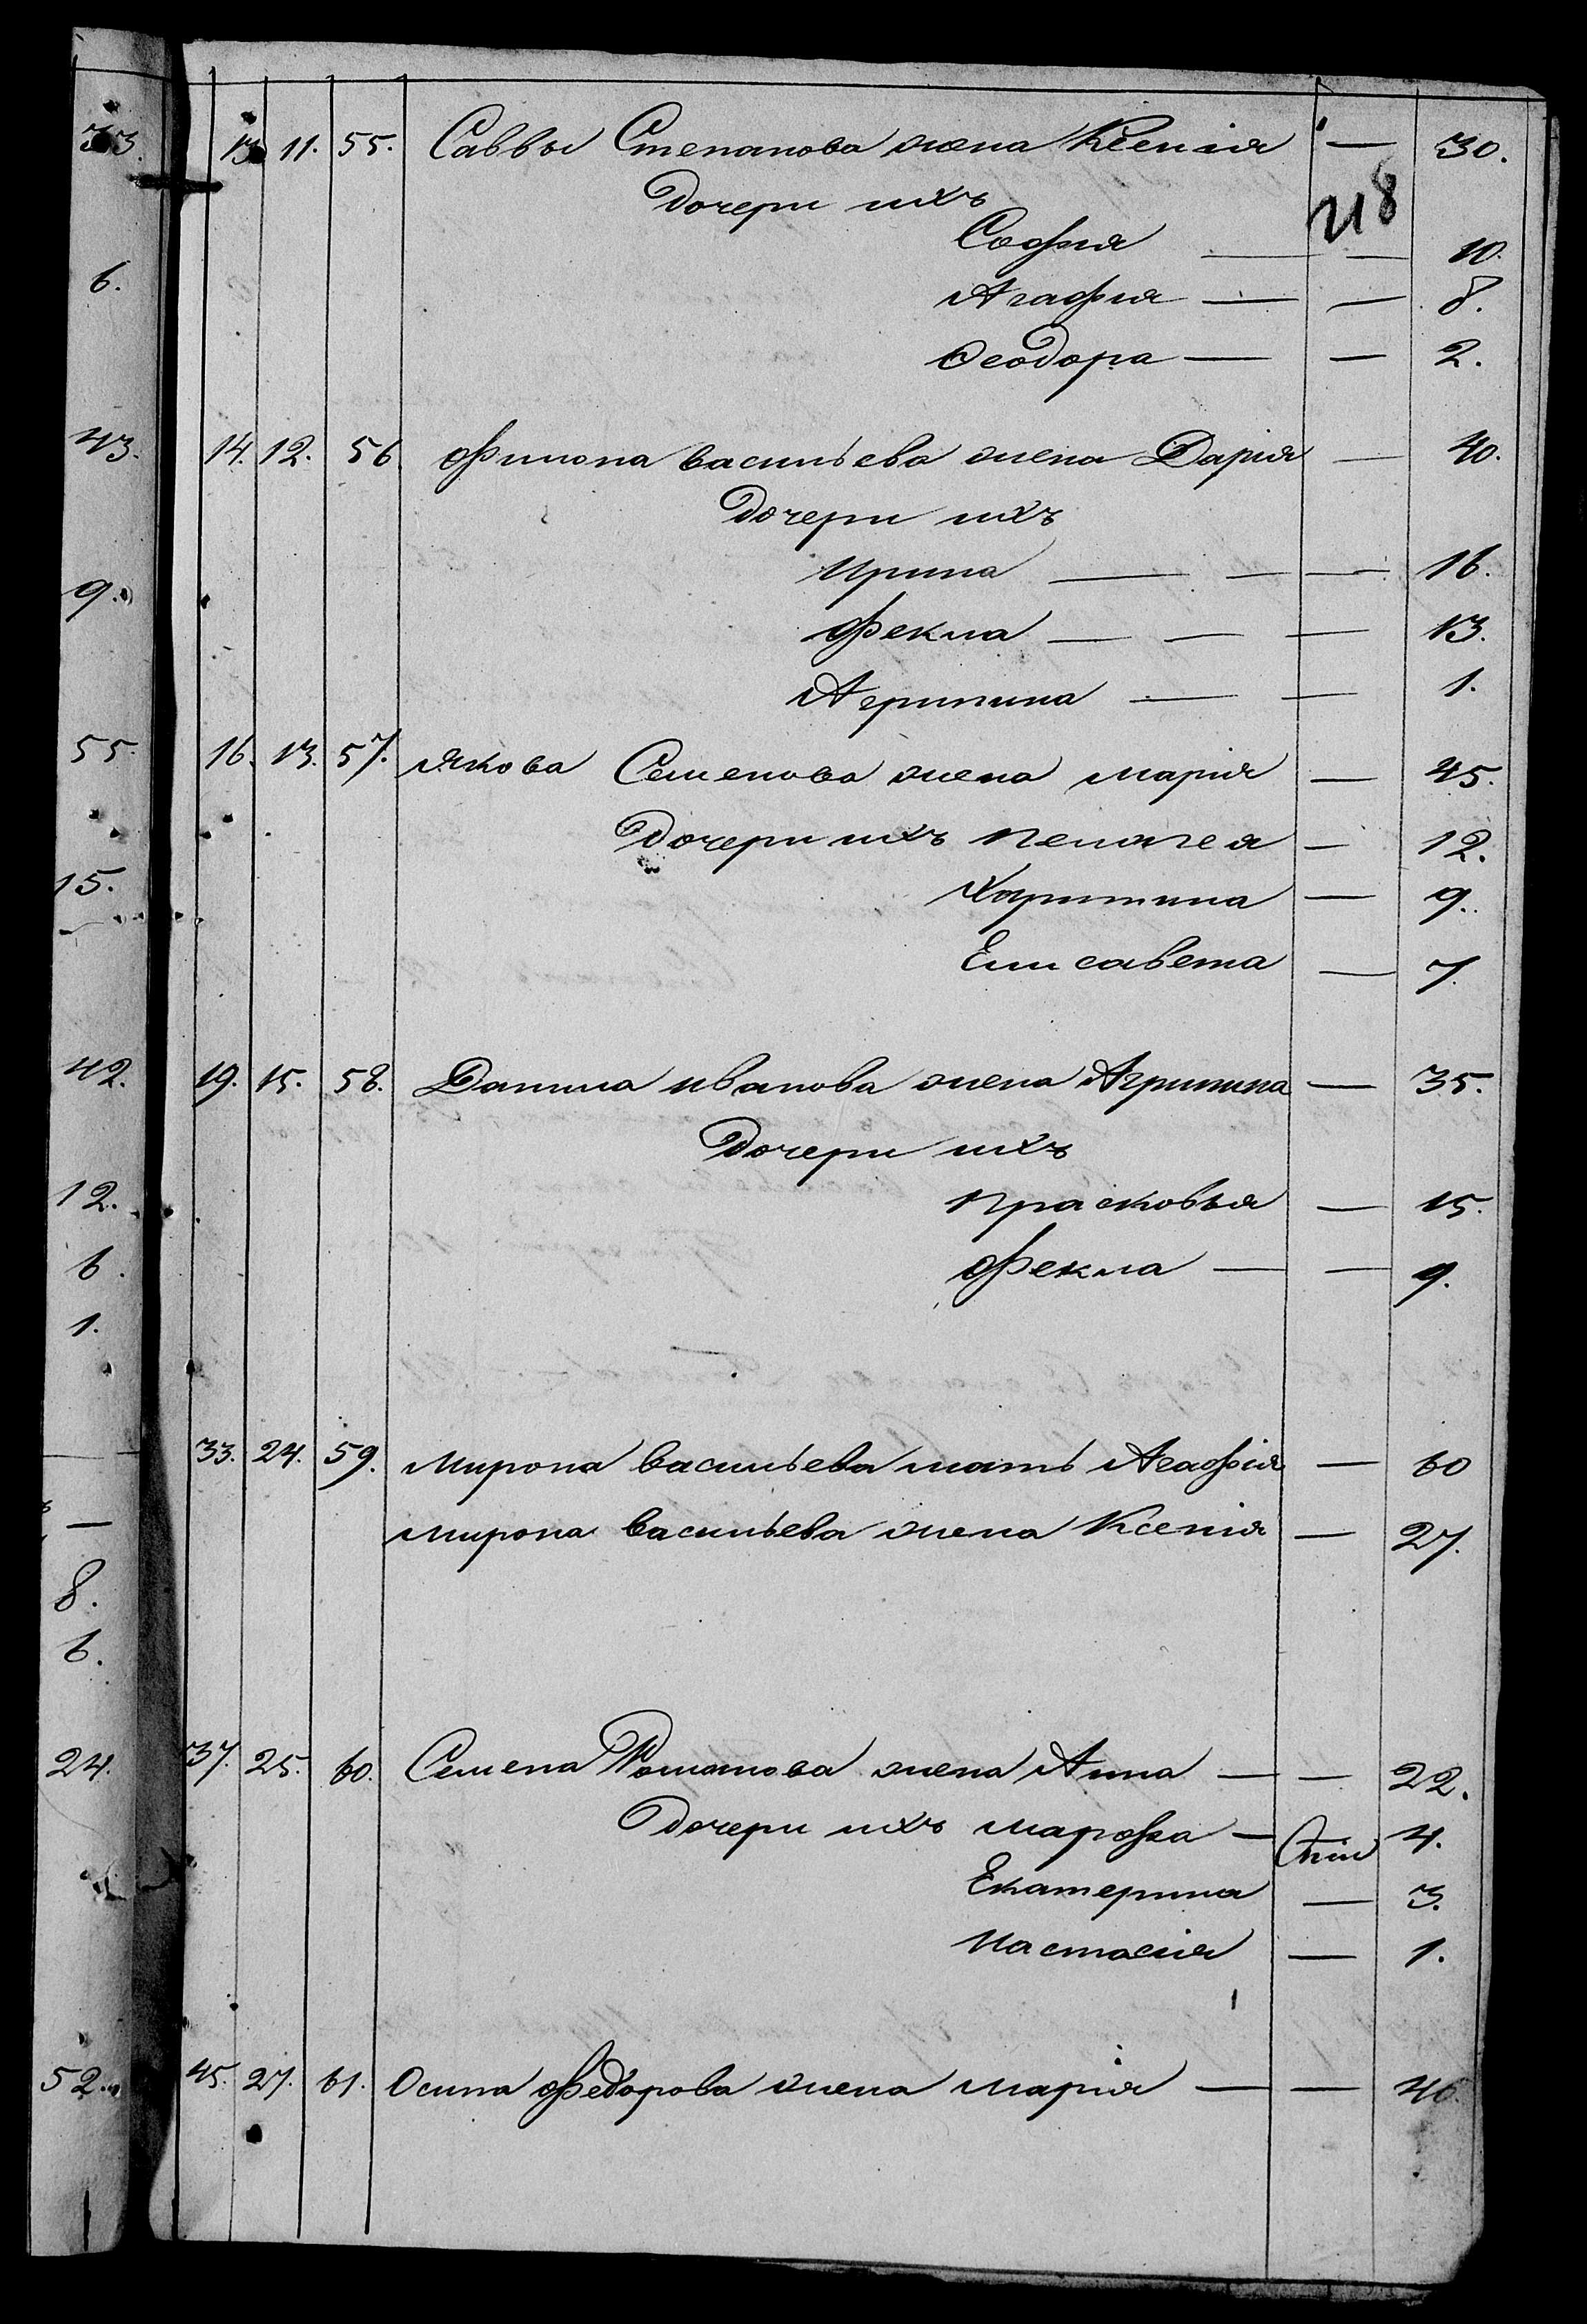 33. 13 11. 55. Саввы Степанова жена Ксенія — 30.
218
Дочери ихъ
Софія — — 10.
6. Агафія — — 8.
Ѳеодора — — 2.
43. 14. 12. 56. Филипа Васильева жена Дарія — 40.
Дочери ихъ
Ирина — — — 16.
9. Фекла — — — 13.
Агрипина — — 1.
55. 16. 13. 57. Якова Семенова жена Марія — 45.
Дочери ихъ Пелагея — 12.
15. Харитина — 9.
Елисавета — 7.
42. 19. 15. 58. Данила Иванова жена Агрипина — 35.
Дочери ихъ
12. Прасковья — 15.
6. Фекла — — 9.
1.
33. 24. 59. Мирона Васильева мать Агафія — 60
Мирона Васильева жена Ксенія — 27.
8.
6.
24. 37. 25. 60. Семена Романова жена Анна — — 22.
Дочери ихъ Марфа — 4.
Екатерина — 3.
Настасія — 1.
52. 45. 27. 61. Осипа Федорова жена Марія — — 40.